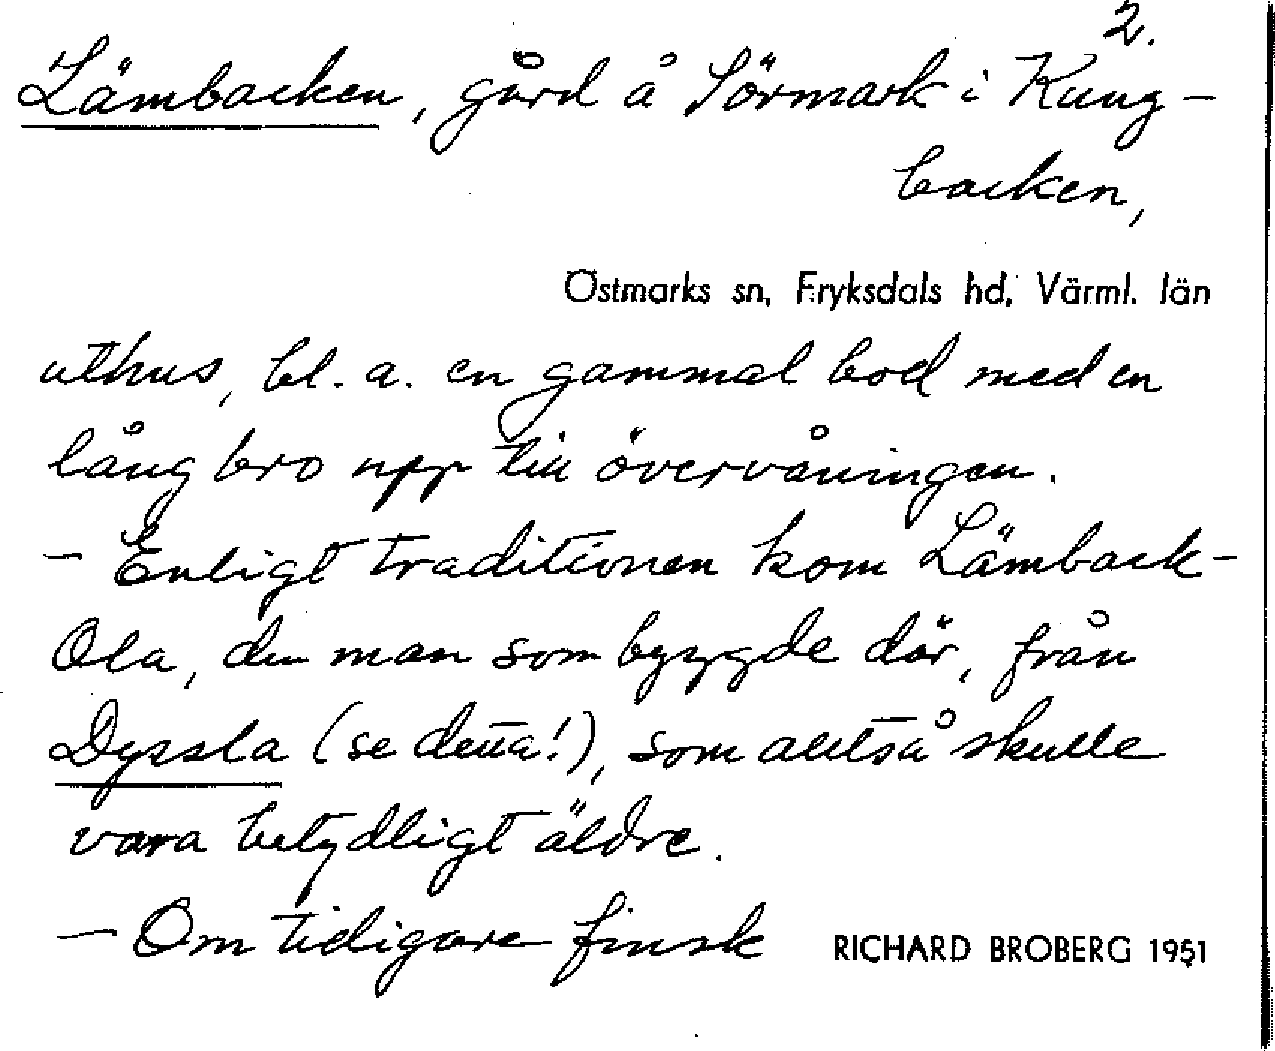 2.
Lämbacken, gård å Sörmark i Kung-
backen,
Östmarks sn, Fryksdals hd, Värml. län
uthus, bl. a. en gammal bod med en
lång bro upp till övervåningen.
- Enligt traditionen kom Lämback-
Ola, den man som byggde där, från
Dyssla (se detta!), som alltså skulle
vara betydligt äldre.
- Om tidigare finsk
RICHARD BROBERG 1951